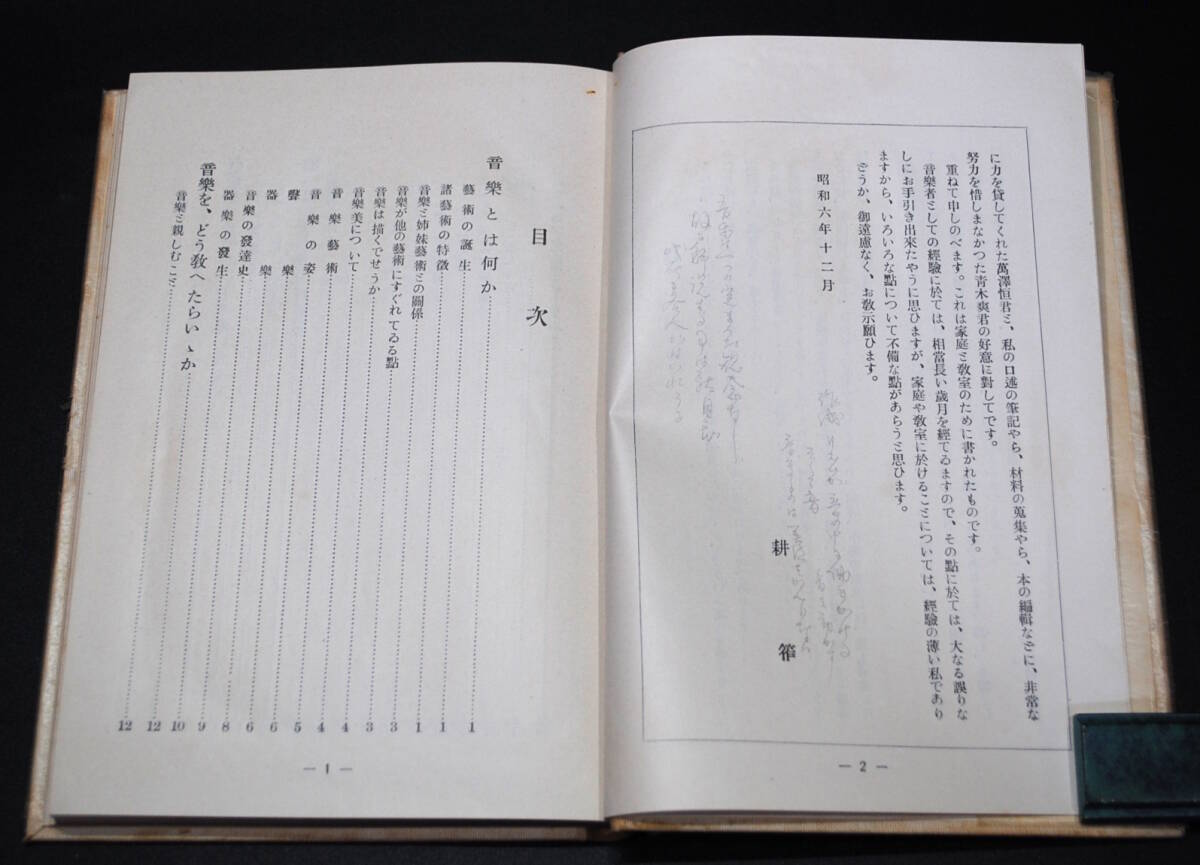 に力を貸してくれた萬澤恒君ミ、私の口述の筆記やら、材料の蒐集やら、本の編輯なごに、非常な
努力を惜しまなかつた靑木爽君の好意に對してです。
重ねて申しのべます。これは家庭ミ敎室のために書かれたものです。
音樂者ミしての經驗に於ては、相當長い歲月を經てゐますので、その點に於ては、大なる誤りな
しにお手引き出來たやうに思ひますが、家庭や敎室に於けるこミについては、經驗の薄い私であり
ますから、いろいろな點について不備な點があらうミ思ひます。
ごうか、御遠慮なく、お敎示願ひます。
昭和六年十二月
耕筰
— 2 —
目次
音樂とは何か 1
藝術の誕生 1
諸藝術の特徵 1
音樂ミ姉妹藝術ミの關係 3
音樂が他の藝術にすぐれてゐる點 3
音樂は描くでせうか 4
音樂美について 4
音樂藝術 5
音樂の姿 6
聲樂 6
器樂 8
音樂の發達史 9
器樂の發生 10
音樂を、どう敎へたらいゝか 12
音樂ミ親しむこミ 12
— 1 —